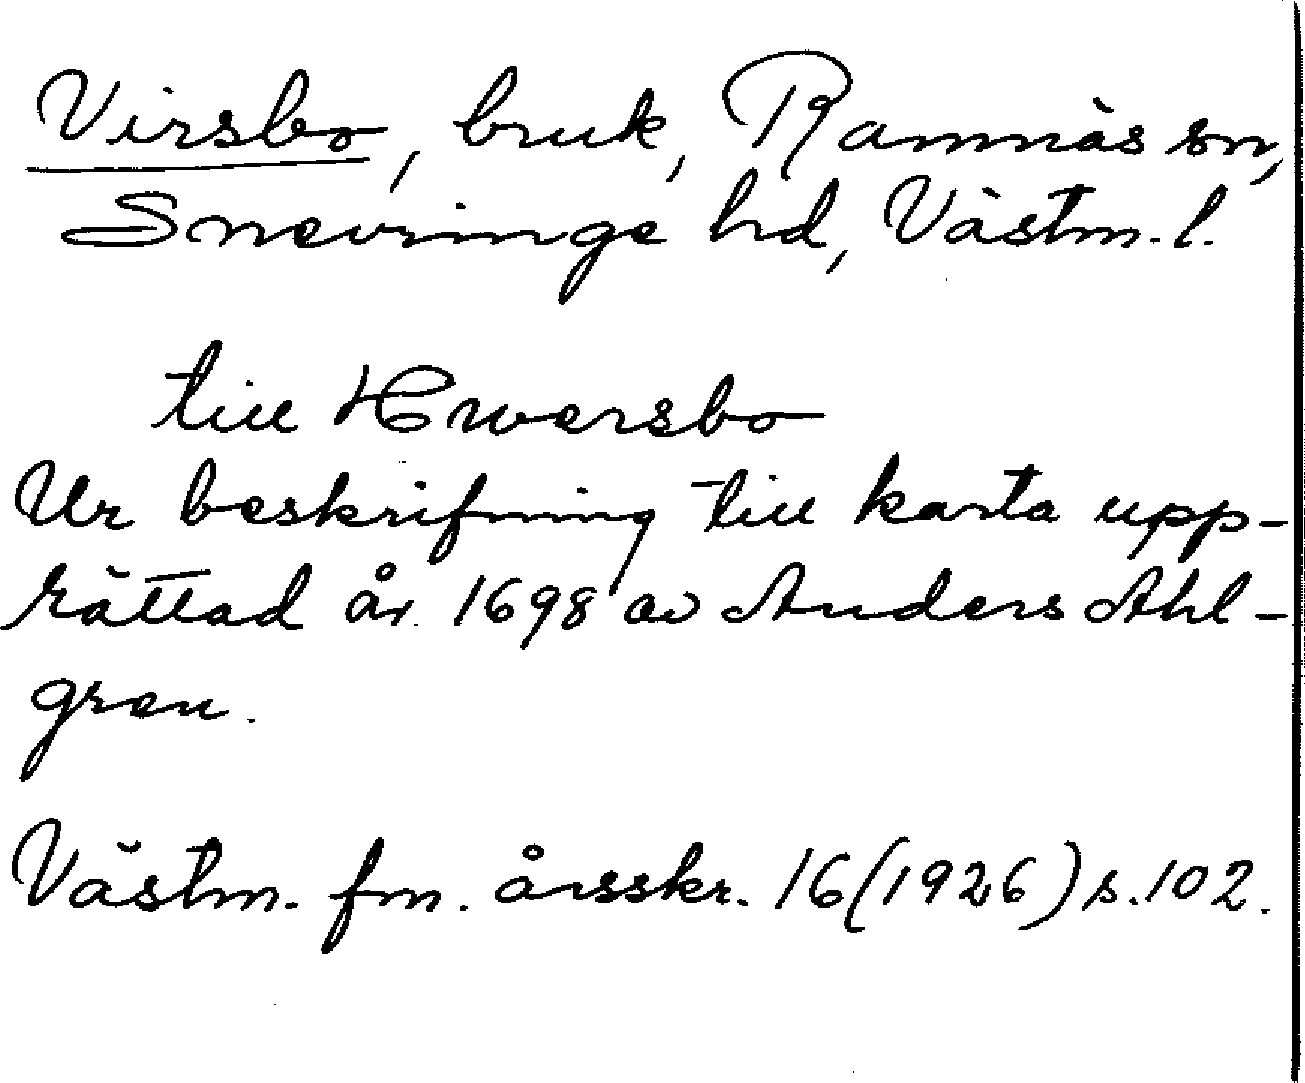 Virsbo, bruk, Ramnäs sn,
Snevringe hd, Västm. l.
till Hwersbo
Ur beskrifning till karta upp-
rättad år 1698 av Anders Ahl-
gren.
Västm. fm. årsskr. 16 (1926) s. 102.